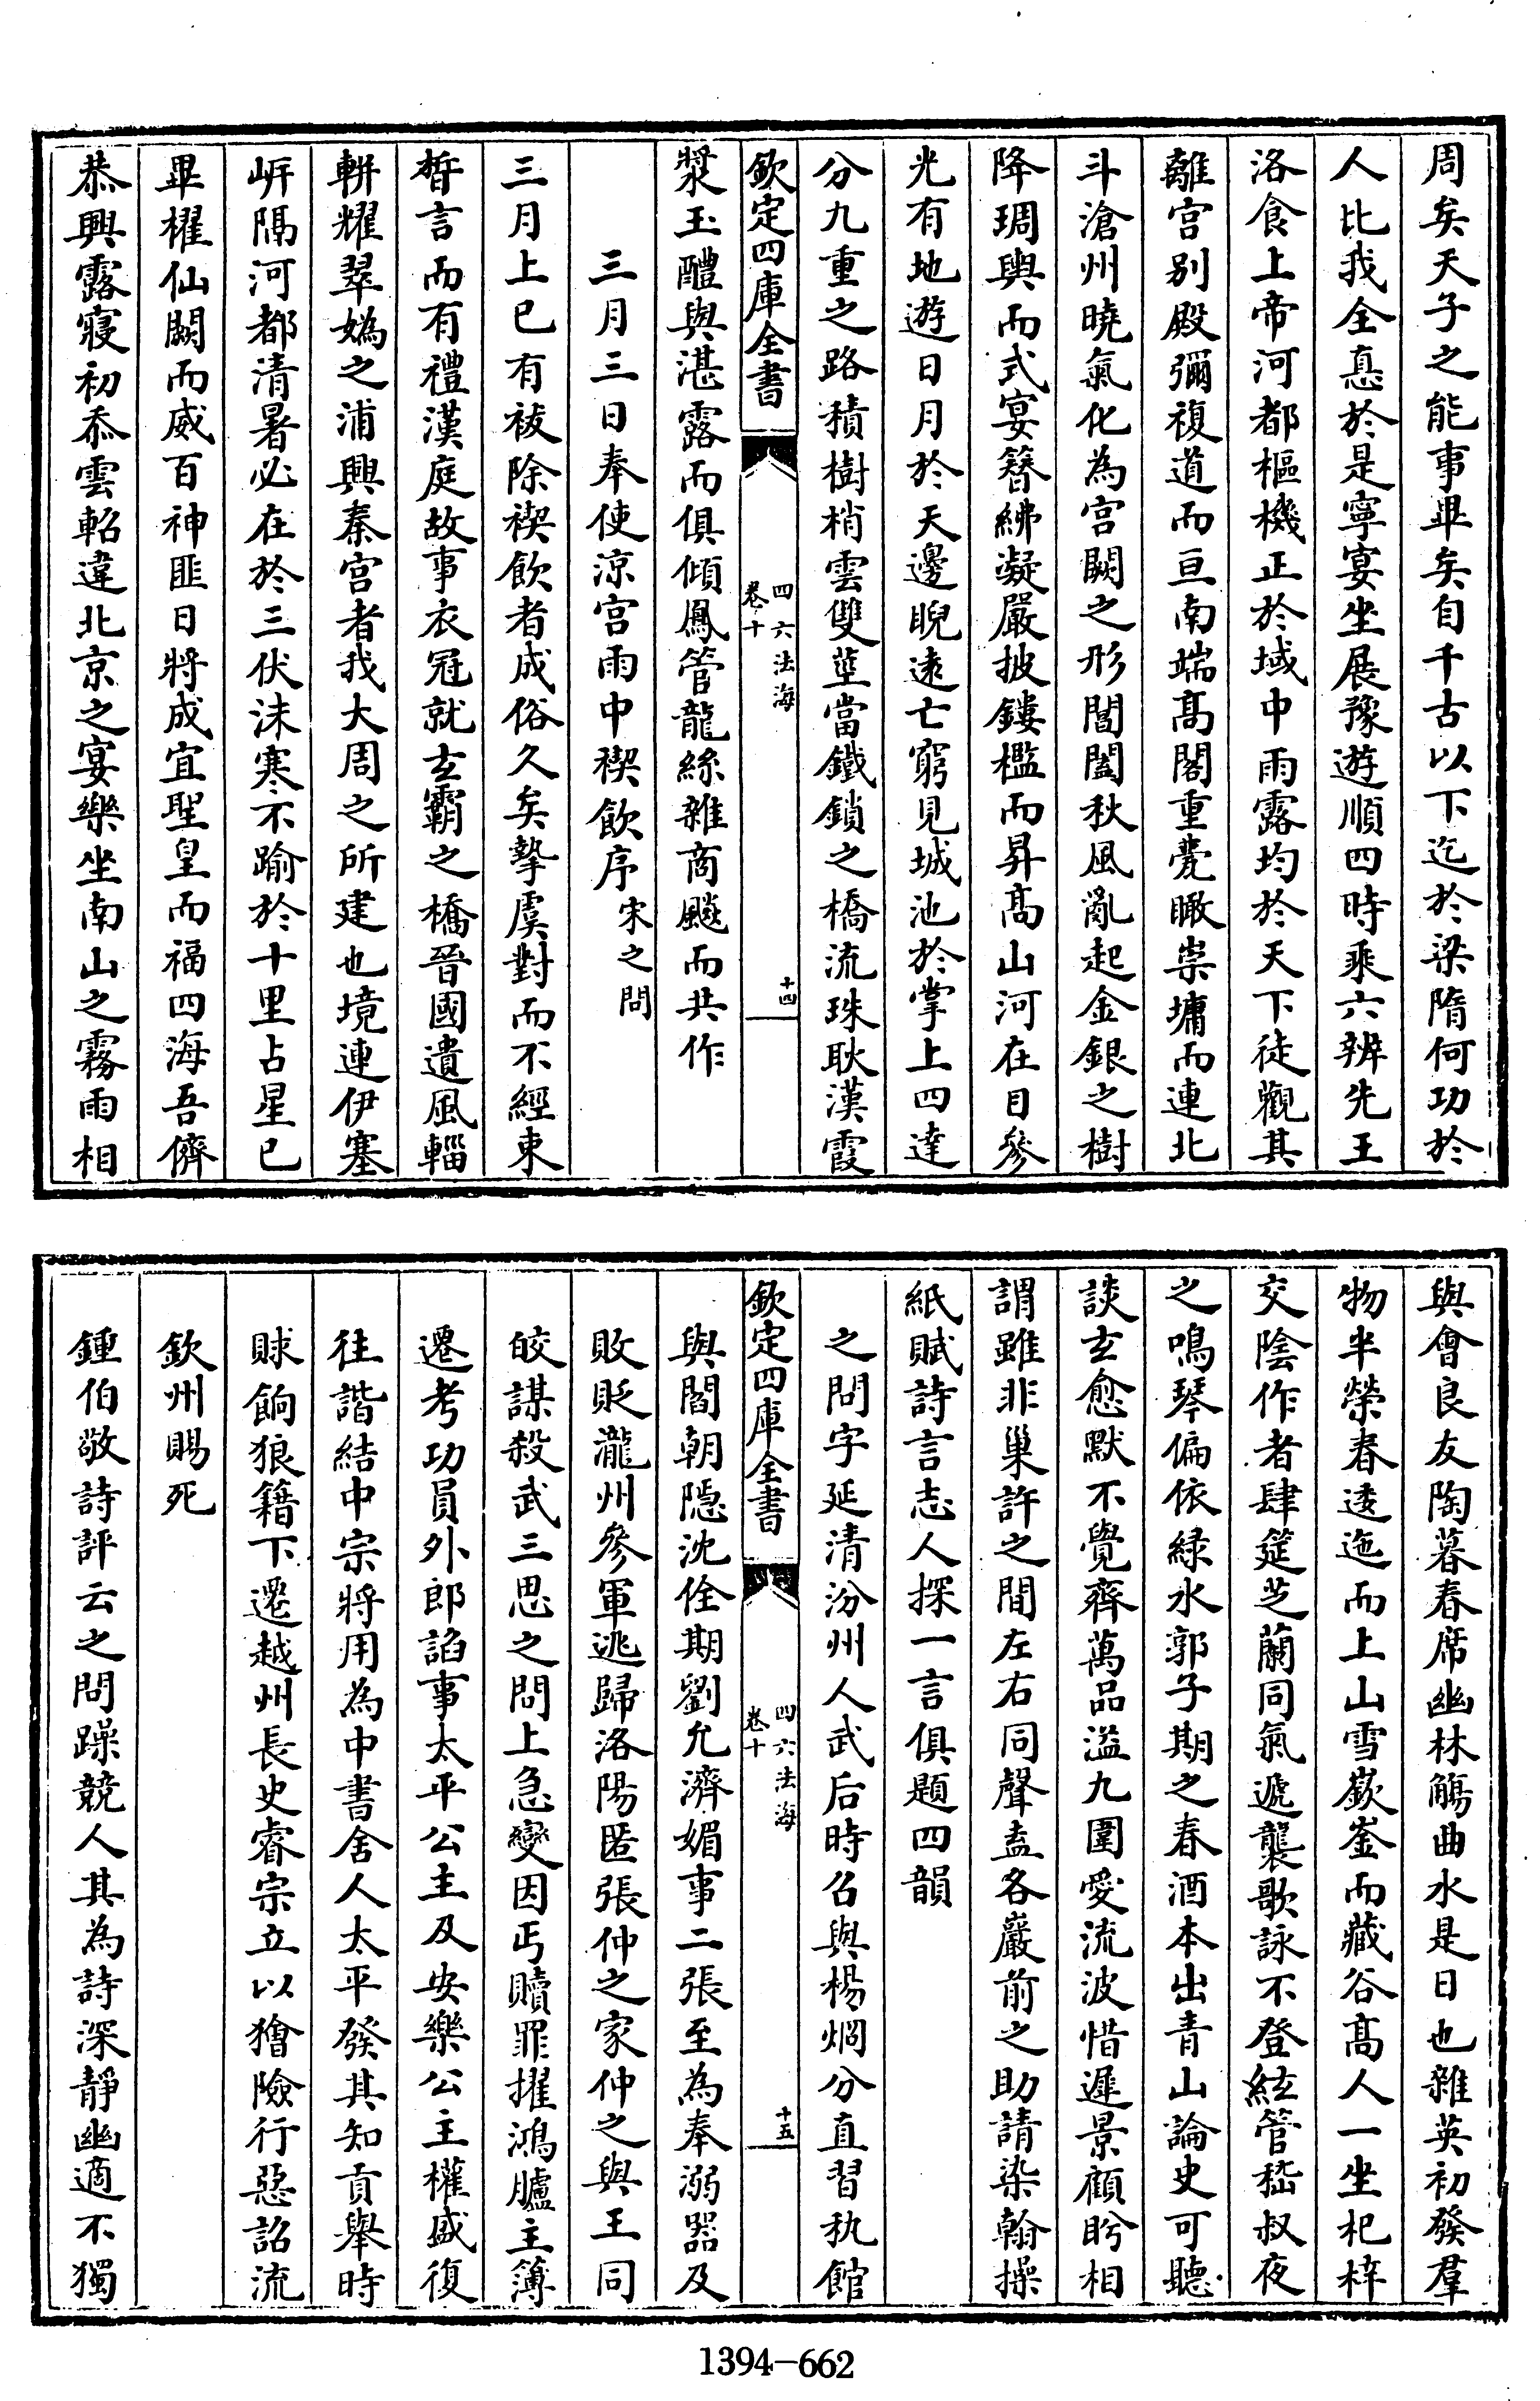 周矣天子之能事畢矣自千古以下迄於梁隋何功於
人比我全惪於是寧宴坐展豫遊順四時乘六辨先王
洛食上帝河都樞機正於域中雨露均於天下徒觀其
離宮别殿彌複道而亘南端髙閣重甍瞰崇墉而連北
斗滄州曉氣化為宮闕之形閶闔秋風亂起金銀之樹
降琱輿而式宴簪紱凝嚴披鏤檻而昇髙山河在目參
光有地遊日月於天邊睨逺亡窮見城池於掌上四達
分九重之路積樹梢雲雙莖當鐵鎖之橋流珠耿漢霞
欽定四庫全書 四六法海 卷十 十四
漿玉醴與湛露而俱傾鳳管龍絲雜商飇而共作
三月三日奉使涼宮雨中禊飲序 宋之問
三月上巳有祓除禊飲者成俗久矣摯虞對而不經束
晳言而有禮漢庭故事衣冠就玄霸之橋晉國遺風輜
軿耀翠媯之浦興秦宮者我大周之所建也境連伊塞
岍隔河都清暑必在於三伏沬寒不踰於十里占星已
畢櫂仙闕而威百神匪日將成宜聖皇而福四海吾儕
恭興露寢初忝雲軺違北京之宴樂坐南山之霧雨相
與會良友陶暮春席幽林觴曲水是日也雜英初發羣
物半榮春逶迤而上山雪嶔崟而藏谷髙人一坐杞梓
交陰作者肆筵芝蘭同氣遞襲歌詠不登絃管嵇叔夜
之鳴琴偏依緑水郭子期之春酒本出青山論史可聽
談玄愈默不覺齊萬品溢九圍愛流波惜遲景顧盻相
謂雖非巢許之間左右同聲盍各巖前之助請染翰操
紙賦詩言志人探一言俱題四韻
之問字延清汾州人武后時召與楊烱分直習執館
欽定四庫全書 四六法海 卷十 十五
與閻朝隱沈佺期劉允濟媚事二張至為奉溺器及
敗貶瀧州參軍逃歸洛陽匿張仲之家仲之與王同
皎謀殺武三思之問上急變因丐贖罪擢鴻臚主簿
遷考功員外郎諂事太平公主及安樂公主權盛復
往諧結中宗將用為中書舍人太平發其知貢舉時
賕餉狼籍下遷越州長史睿宗立以獪險行惡詔流
欽州賜死
鍾伯敬詩評云之問躁競人其為詩深靜幽適不獨
1394—662